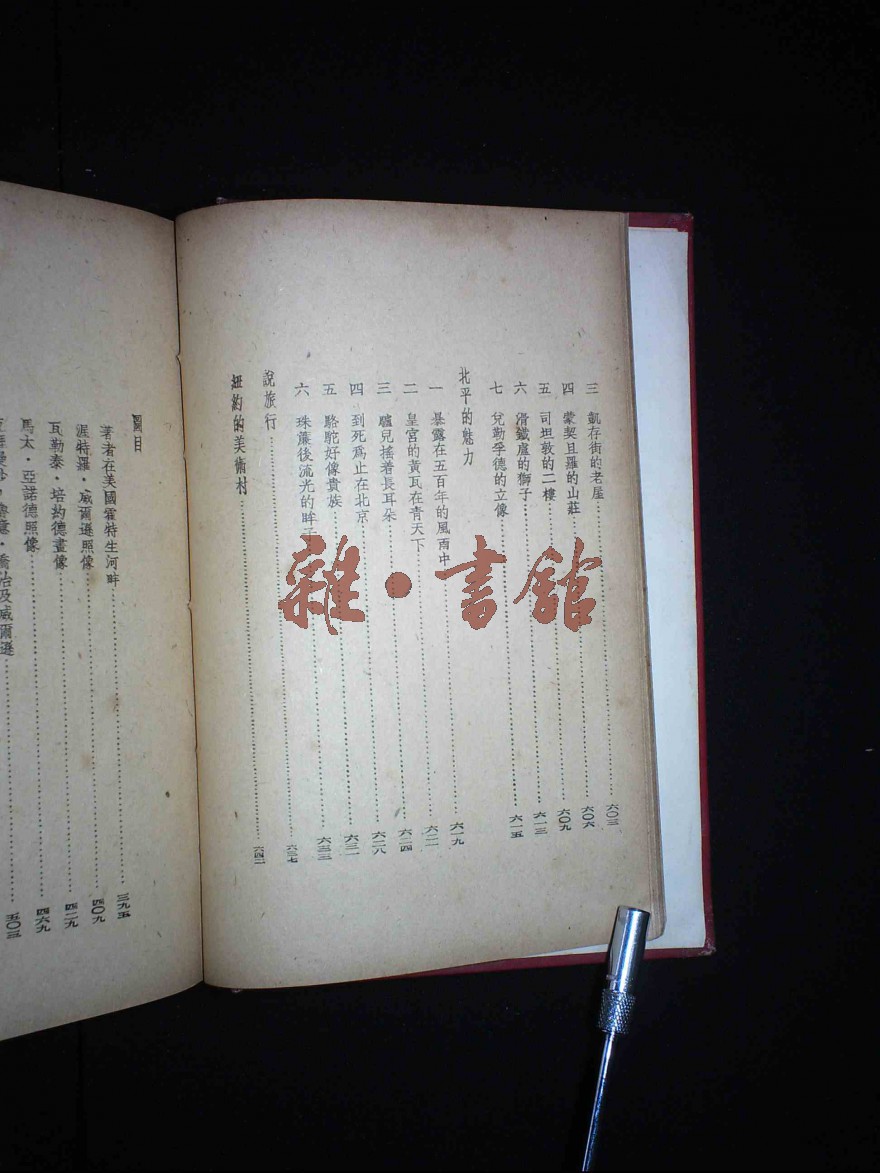 三 凱存街的老屋 六〇三
四 蒙契且羅的山莊 六〇六
五 司坦敦的二樓 六〇九
六 滑鐵盧的獅子 六一三
七 兌勒孚德的立像 六一五
北平的魅力
一 暴露在五百年的風雨中 六一九
二 皇宮的黃瓦在青天下 六二一
三 驢兒搖着長耳朵 六二四
四 到死爲止在北京 六二八
五 駱駝好像貴族 六三一
六 珠簾後流光的眸子 六三三
說旅行 六三七
紐約的美術村 六四二
圖目
著者在美國霍特生河畔 三九五
渥特羅·威爾遜照像 四〇九
瓦勒泰·培約德畫像 四二九
馬太·亞諾德照像 四六九
喬治及威爾遜 五〇三
雜·書館